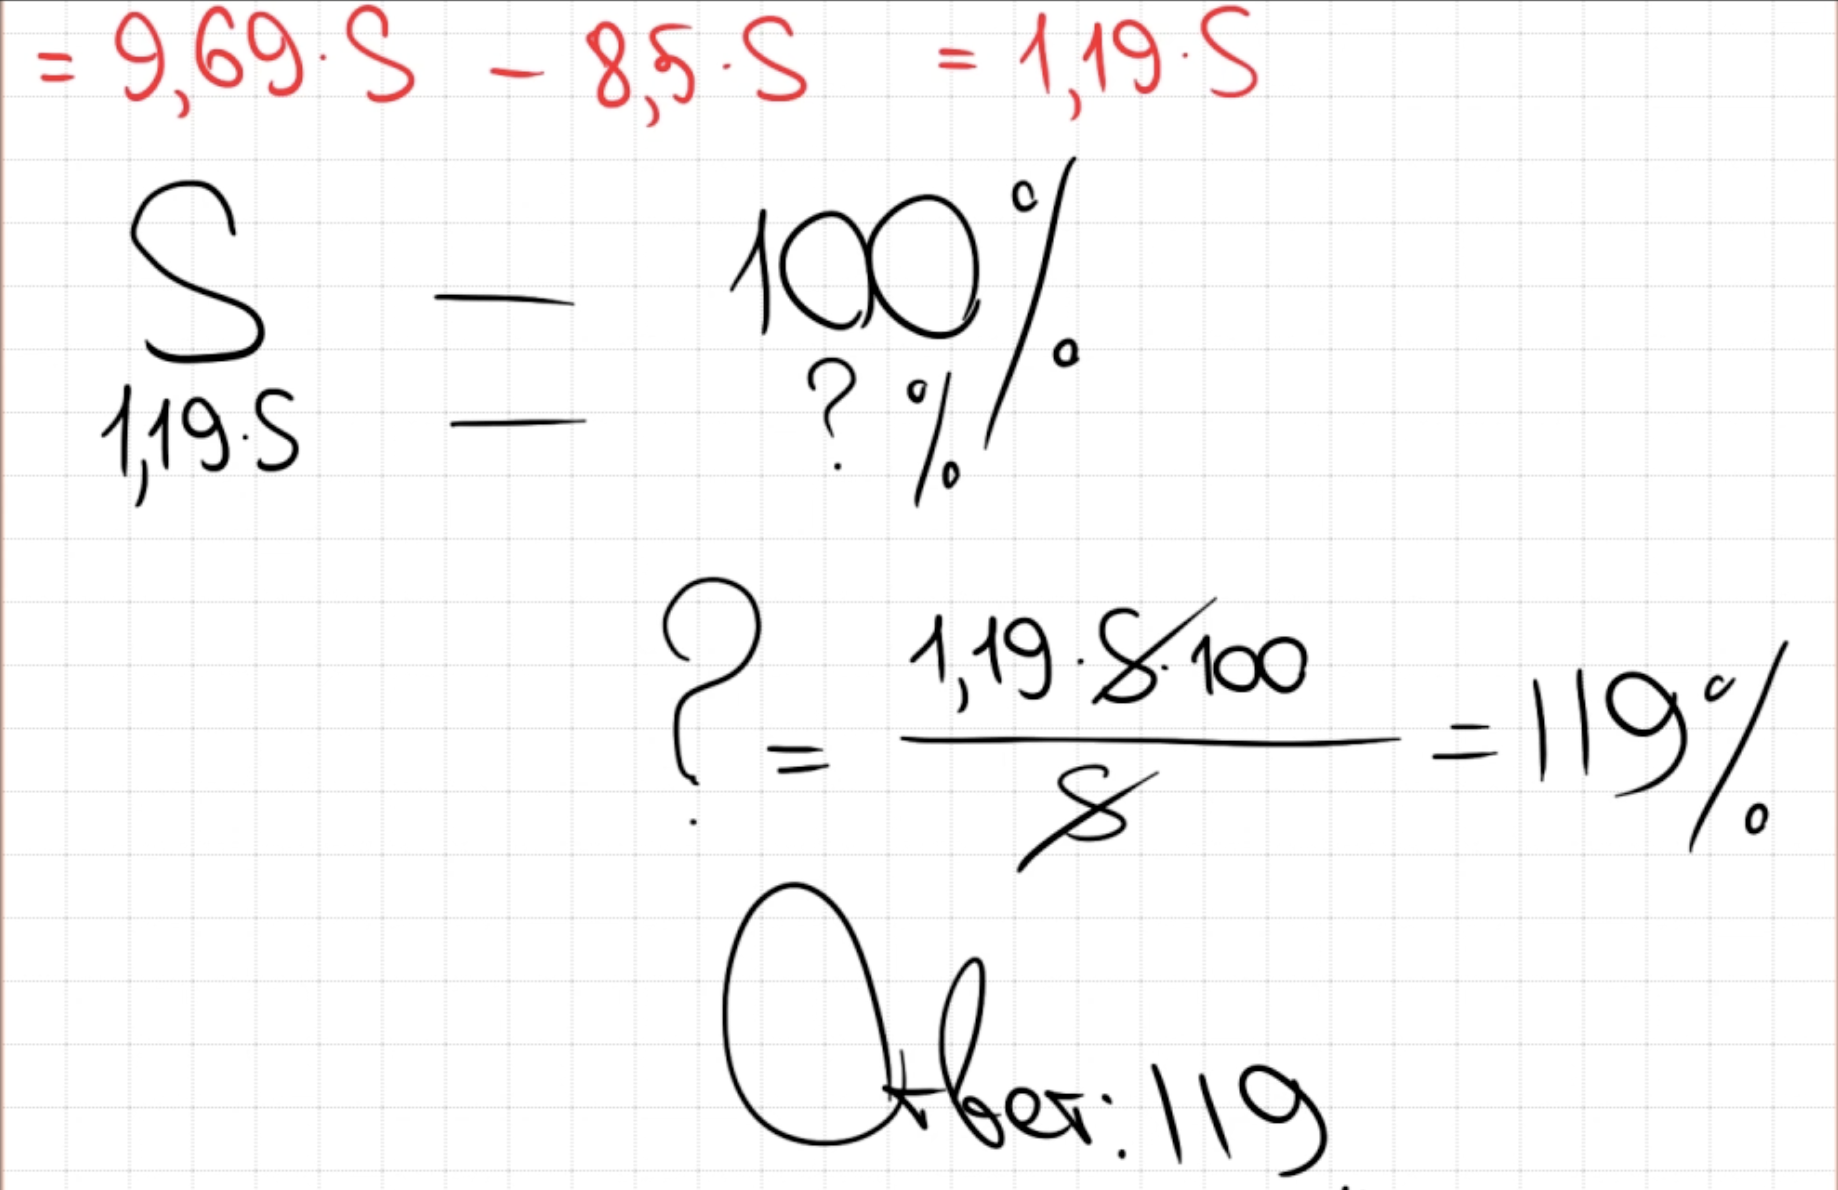 = 9,69·S - 8,5·S = 1,19·S
S — 100%
1,19·S — ?%
? = 1,19·S·100 / S = 119%
Ответ: 119.